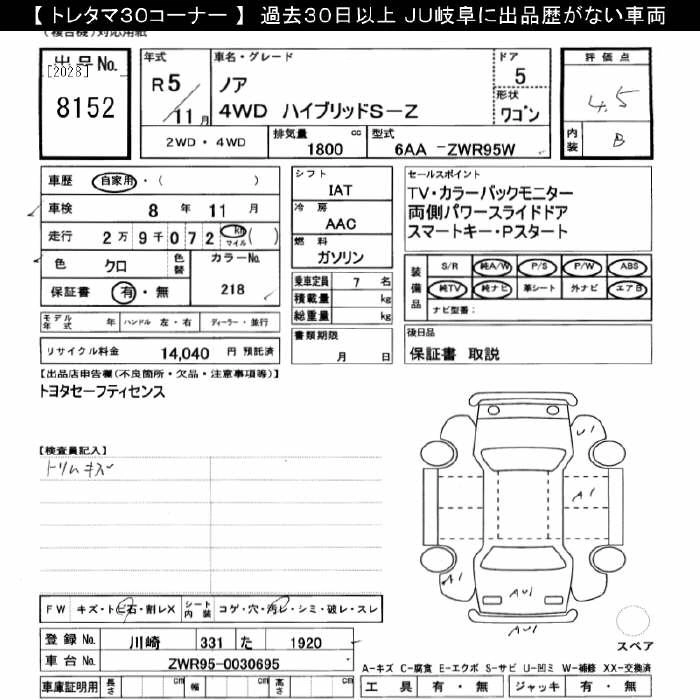 【トレタマ30コーナー】 過去30日以上 JU岐阜に出品歴がない車両
出品No.
[2028]
8152
年式
R5
11月
車名・グレード
ノア
4WD ハイブリッドS-Z
ドア
5
形状
ワゴン
2WD・4WD
排気量 cc
1800
型式
6AA -ZWR95W
評価点
4.5
内装
B
車歴 自家用・( )
車検 8年 11月
走行 2万9千072 km マイル ( )
色 クロ 色替
カラーNo. 218
保証書 有・無
モデル年式 年 ハンドル 左・右 ディーラー・並行
リサイクル料金 14,040 円 預託済
シフト
IAT
冷房
AAC
燃料
ガソリン
乗車定員 7 名
積載量 kg
総重量 kg
書類期限
月 日
セールスポイント
TV・カラーバックモニター
両側パワースライドドア
スマートキー・Pスタート
装備品
S/R 純A/W P/S P/W ABS
純TV 純ナビ 革シート 外ナビ エアB
ナビ型番:
後日品
保証書 取説
【出品店申告欄(不良箇所・欠品・注意事項等)】
トヨタセーフティセンス
【検査員記入】
トリムキズ
FW キズ・トビ石・割レX
シート内装 コゲ・穴・汚レ・シミ・破レ・スレ
登録No. 川崎 331 た 1920
車台No. ZWR95-0030695
車庫証明用 長さ cm 幅 cm 高さ cm
U1
A1
A1
AU1
AU1
スペア
A-キズ C-腐食 E-エクボ S-サビ U-凹ミ W-補修 XX-交換済
工具 有・無 ジャッキ 有・無